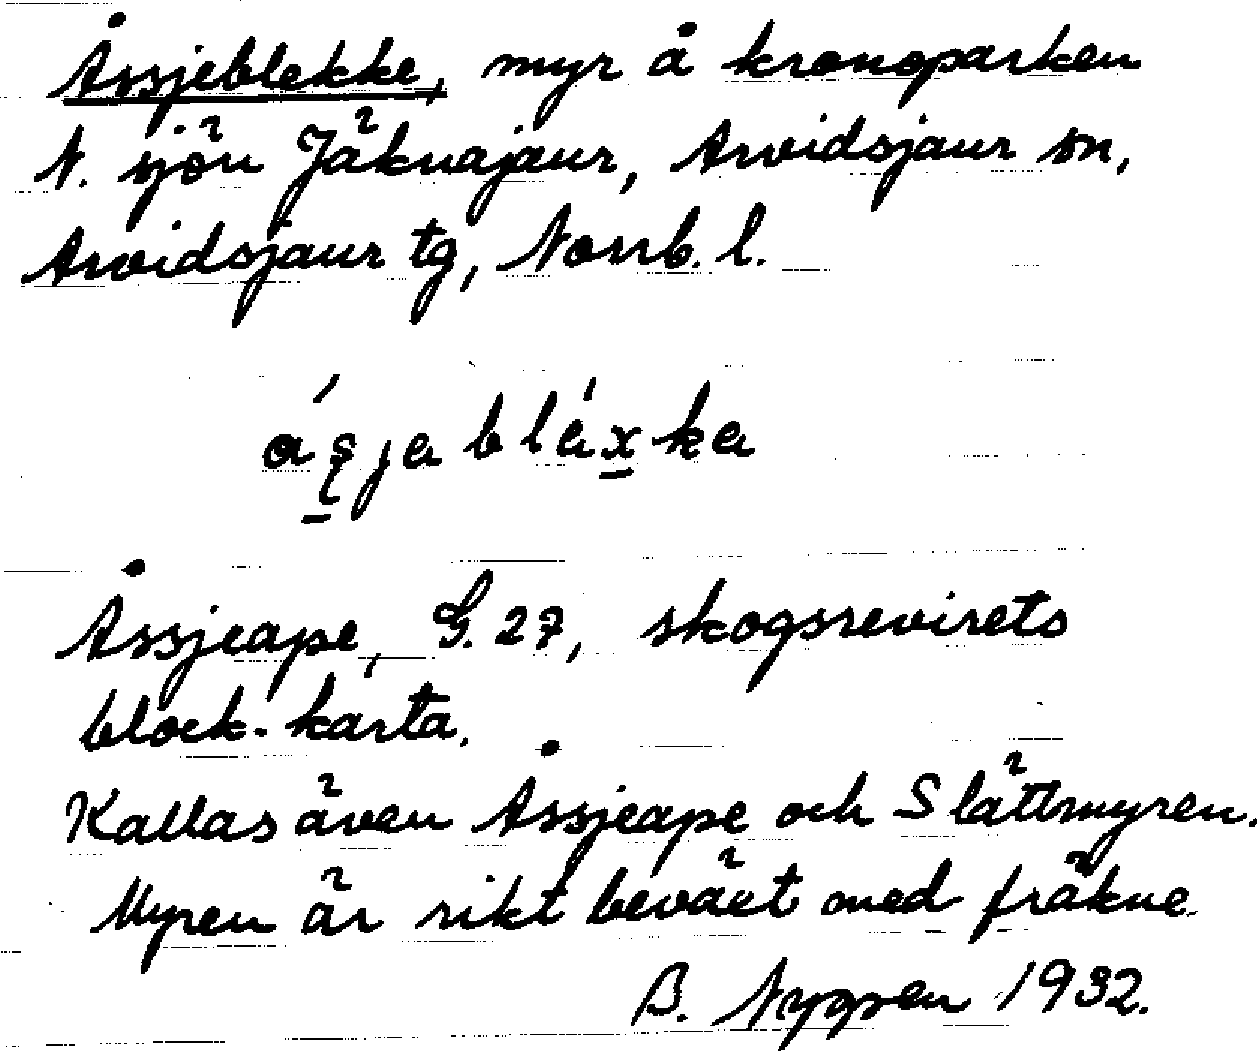 Åssjeblekke, myr å kronoparken
N. sjön Jäknajaur, Arvidsjaur sn,
Arvidsjaur tg, Norrb. l.
áşjabláx̱ka
Åssjeape, G. 27, skogsrevirets
block-karta.
Kallas även Åssjeape och Slåttmyren.
Myren är rikt beväxt med fräkne
B. Nygren 1932.